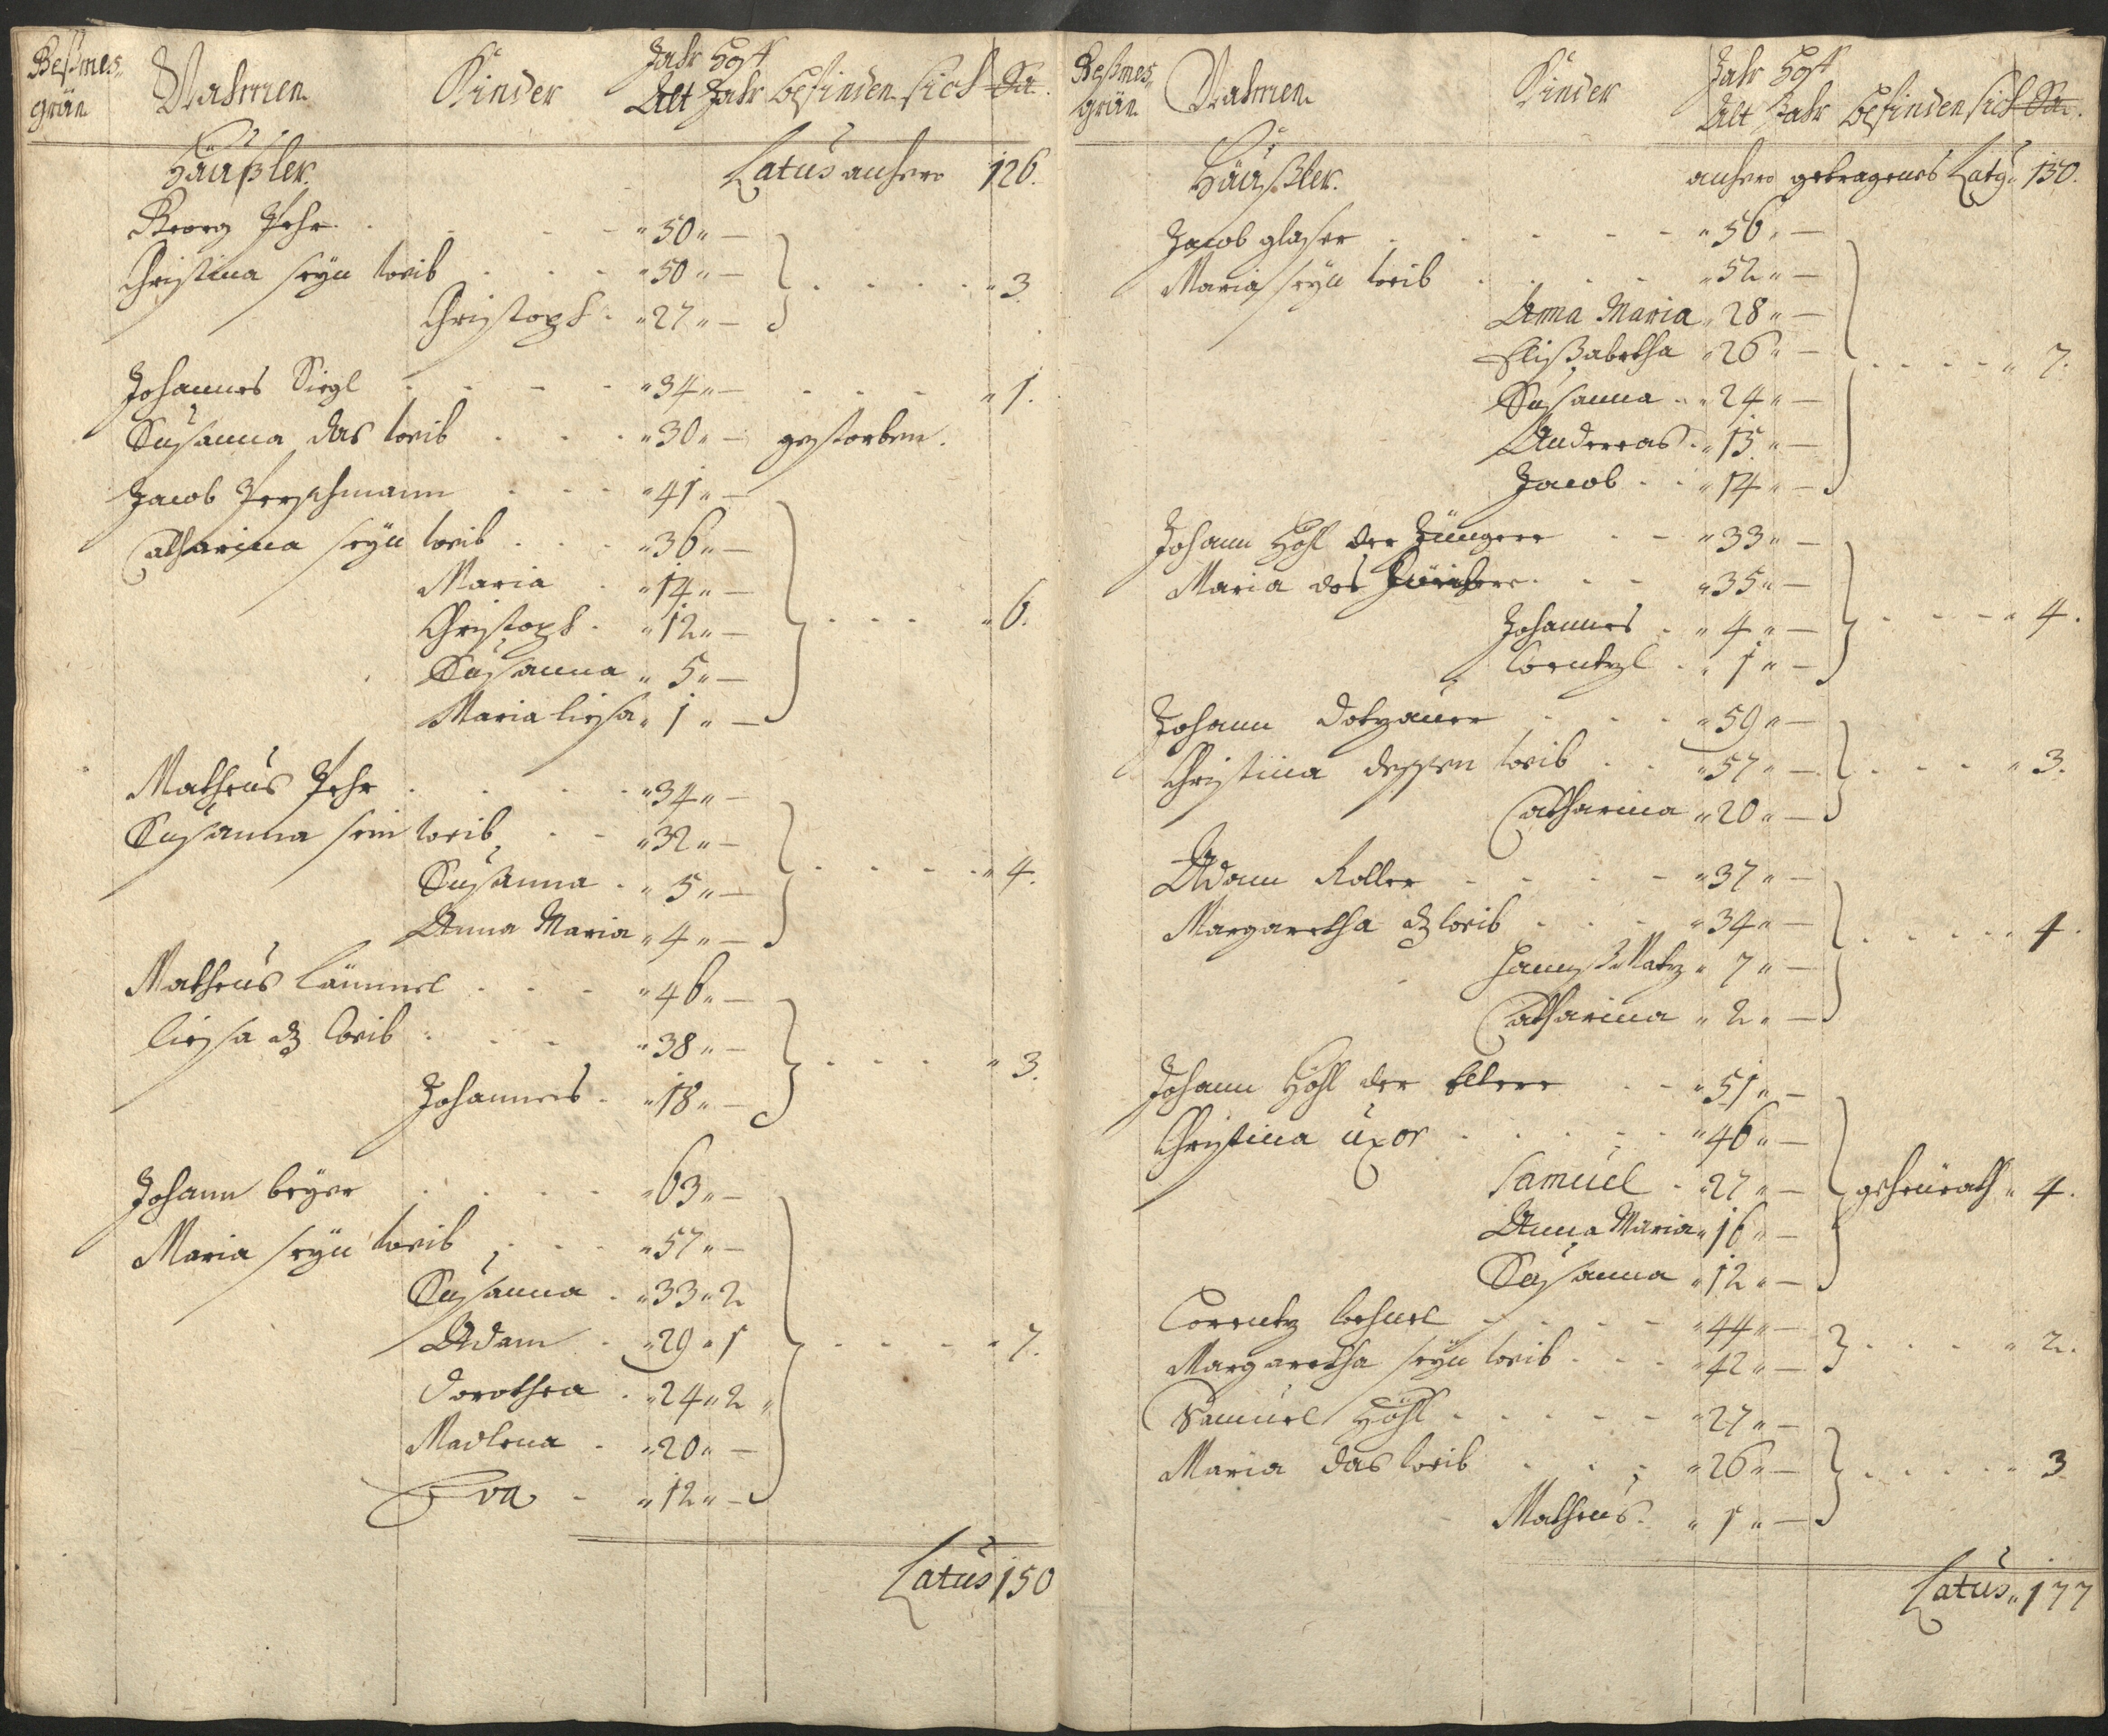 Beßmes„ Nahmen Kinder Jahr
grün Alt Jahr befinden sich Sa.
Häußler. Latus anhero 126.
Georg Pehr . „ 50 „ —
Christina seÿn weib . „ 50 „ — „ 3.
Christoph . „ 27 „ —
Johannes Siegl „ 34 „ — „ 1.
Susanna das weib „ 30 „ — gestorben.
Jacob Perschmann „ 41 „ —
Catharina seÿn weib „ 36 „ —
Maria „ 14 „ —
Christoph . „ 12 „ — „ 6.
Susanna „ 5 „ —
Maria liesa „ 1 „ —
Matheus Pehr „ 34 „ —
Susanna sein weib „ 32 „ —
Susanna . „ 5 „ — „ 4.
Anna Maria „ 4 „ —
Matheus Lämmel „ 46 „ —
liesa dz weib „ 38 „ — „ 3.
Johannes . „ 18 „ —
Johann beÿer „ 63 „ —
Maria seÿn weib „ 57 „ —
Susanna . „ 33 „ 2
Adam . „ 29 „ 1 „ 7.
Dorothea . „ 24 „ 2 „
Madlena . „ 20 „ —
Eva . „ 12 „ —
Latus 150
Beßmes„ Nahmen Kinder Jahr
grün Alt Jahr befinden sich Sa.
Häußler. anhero getragenes Latq. 150.
Jacob glaser „ 56 „ —
Maria seÿn weib „ 52 „ —
Anna Maria „ 28 „ —
Elisabetha „ 26 „ — „ 7.
Susanna „ 24 „ —
Andereas . „ 15 „ —
Jacob . „ 14 „ —
Johann Höhl der Jüngere „ 33 „ —
Maria das „ 35 „ —
Johannes . „ 4 „ — „ 4.
Lorentzl . „ 1 „ —
Johann Dotzauer „ 59 „ —
Christina dessen weib „ 57 „ — „ 3.
Catharina „ 20 „ —
Adam Koller „ 37 „ —
Margaretha dz weib „ 34 „ — „ 4.
Hannß Matz „ 7 „ —
Catharina „ 2 „ —
Johann Höhl der Eltere „ 51 „ —
Christina uxor „ 46 „ —
Samuel . „ 27 „ — geheurath „ 4.
Anna Maria „ 16 „ —
Susanna „ 12 „ —
Lorentz „ 44 „ — „ 2.
Margaretha seÿn weib „ 42 „ —
Samuel Höhl „ 27 „ —
Maria das weib „ 26 „ — „ 3
Matheus . „ 1 „ —
Latus „ 177